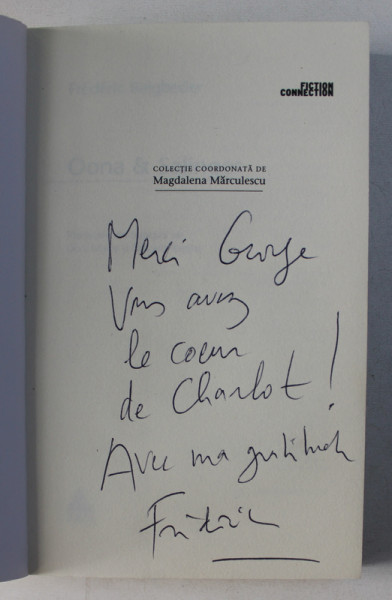 Frédéric Beigbeder
Oona &
FICTION
CONNECTION
COLECȚIE COORDONATĂ DE
Magdalena Mărculescu
Merci George
Vous avez
le coeur
de Charlot !
Avec ma gratitude
Frédéric